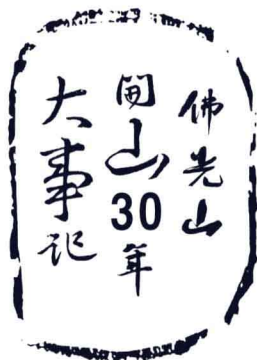 佛光山
開山30年
大事記